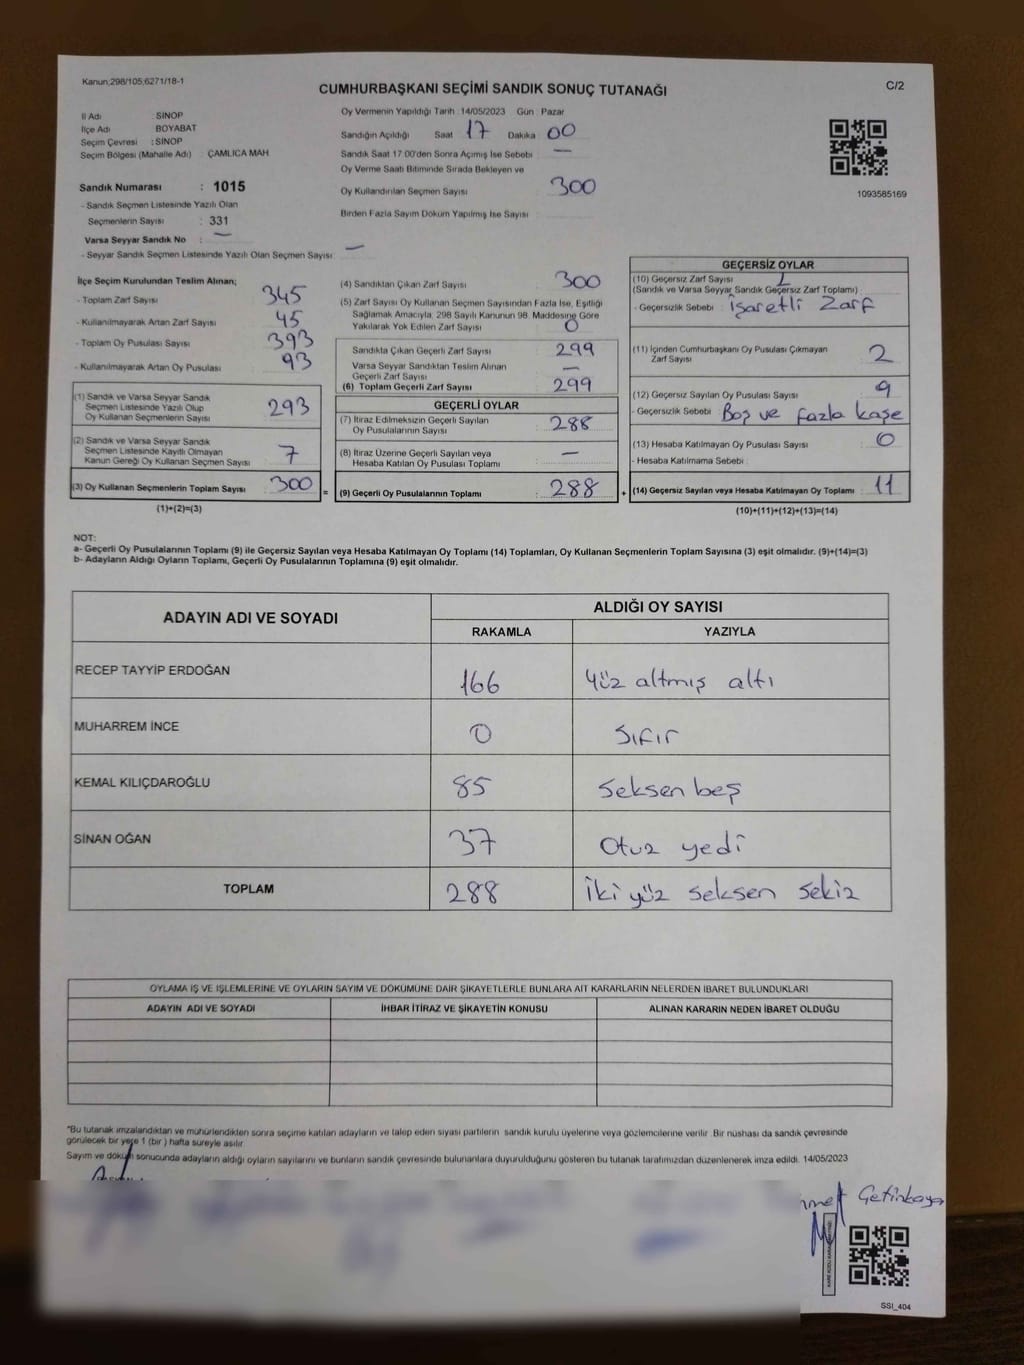 Kanun:298/105;6271/18-1
CUMHURBAŞKANI SEÇİMİ SANDIK SONUÇ TUTANAĞI
C/2
İl Adı SİNOP
İlçe Adı BOYABAT
Seçim Çevresi : SİNOP
Seçim Bölgesi (Mahalle Adı) ÇAMLICA MAH
Sandık Numarası : 1015
- Sandık Seçmen Listesinde Yazılı Olan
Seçmenlerin Sayısı : 331
Varsa Seyyar Sandık No : —
- Seyyar Sandık Seçmen Listesinde Yazılı Olan Seçmen Sayısı: —
Oy Vermenin Yapıldığı Tarih : 14/05/2023 Gün : Pazar
Sandığın Açıldığı Saat 17 Dakika 00
Sandık Saat 17:00'den Sonra Açımış İse Sebebi : —
Oy Verme Saati Bitiminde Sırada Bekleyen ve
Oy Kullandırılan Seçmen Sayısı 300
Birden Fazla Sayım Döküm Yapılmış İse Sayısı
1093585169
İlçe Seçim Kurulundan Teslim Alınan;
- Toplam Zarf Sayısı 345
- Kullanılmayarak Artan Zarf Sayısı 45
- Toplam Oy Pusulası Sayısı 393
- Kullanılmayarak Artan Oy Pusulası 93
(1) Sandık ve Varsa Seyyar Sandık
Seçmen Listesinde Yazılı Olup
Oy Kullanan Seçmenlerin Sayısı 293
(2) Sandık ve Varsa Seyyar Sandık
Seçmen Listesinde Kayıtlı Olmayan
Kanun Gereği Oy Kullanan Seçmen Sayısı 7
(3) Oy Kullanan Seçmenlerin Toplam Sayısı 300 =
(1)+(2)=(3)
(4) Sandıktan Çıkan Zarf Sayısı 300
(5) Zarf Sayısı Oy Kullanan Seçmen Sayısından Fazla İse, Eşitliği
Sağlamak Amacıyla, 298 Sayılı Kanunun 98. Maddesine Göre
Yakılarak Yok Edilen Zarf Sayısı 0
Sandıkta Çıkan Geçerli Zarf Sayısı 299
Varsa Seyyar Sandıktan Teslim Alınan
Geçerli Zarf Sayısı —
(6) Toplam Geçerli Zarf Sayısı 299
GEÇERLİ OYLAR
(7) İtiraz Edilmeksizin Geçerli Sayılan
Oy Pusulalarının Sayısı 288
(8) İtiraz Üzerine Geçerli Sayılan veya
Hesaba Katılan Oy Pusulası Toplamı —
(9) Geçerli Oy Pusulalarının Toplamı 288 +
GEÇERSİZ OYLAR
(10) Geçersiz Zarf Sayısı 1
(Sandık ve Varsa Seyyar Sandık Geçersiz Zarf Toplamı)
- Geçersizlik Sebebi : İşaretli Zarf
(11) İçinden Cumhurbaşkanı Oy Pusulası Çıkmayan
Zarf Sayısı 2
(12) Geçersiz Sayılan Oy Pusulası Sayısı 9
- Geçersizlik Sebebi Boş ve fazla kaşe
(13) Hesaba Katılmayan Oy Pusulası Sayısı 0
- Hesaba Katılmama Sebebi :
(14) Geçersiz Sayılan veya Hesaba Katılmayan Oy Toplamı 11
(10)+(11)+(12)+(13)=(14)
NOT:
a- Geçerli Oy Pusulalarının Toplamı (9) ile Geçersiz Sayılan veya Hesaba Katılmayan Oy Toplamı (14) Toplamları, Oy Kullanan Seçmenlerin Toplam Sayısına (3) eşit olmalıdır. (9)+(14)=(3)
b- Adayların Aldığı Oyların Toplamı, Geçerli Oy Pusulalarının Toplamına (9) eşit olmalıdır.
ADAYIN ADI VE SOYADI
ALDIĞI OY SAYISI
RAKAMLA YAZIYLA
RECEP TAYYİP ERDOĞAN 166 Yüz altmış altı
MUHARREM İNCE 0 Sıfır
KEMAL KILIÇDAROĞLU 85 Seksen beş
SİNAN OĞAN 37 Otuz yedi
TOPLAM 288 İki yüz seksen sekiz
OYLAMA İŞ VE İŞLEMLERİNE VE OYLARIN SAYIM VE DÖKÜMÜNE DAİR ŞİKAYETLERLE BUNLARA AİT KARARLARIN NELERDEN İBARET BULUNDUKLARI
ADAYIN ADI VE SOYADI İHBAR İTİRAZ VE ŞİKAYETİN KONUSU ALINAN KARARIN NEDEN İBARET OLDUĞU
*Bu tutanak imzalandıktan ve mühürlendikten sonra seçime katılan adayların ve talep eden siyasi partilerin sandık kurulu üyelerine veya gözlemcilerine verilir. Bir nüshası da sandık çevresinde
görülecek bir yere 1 (bir) hafta süreyle asılır.
Sayım ve döküm sonucunda adayların aldığı oyların sayılarını ve bunların sandık çevresinde bulunanlara duyurulduğunu gösteren bu tutanak tarafımızdan düzenlenerek imza edildi. 14/05/2023
Çetinkaya
SSI_404